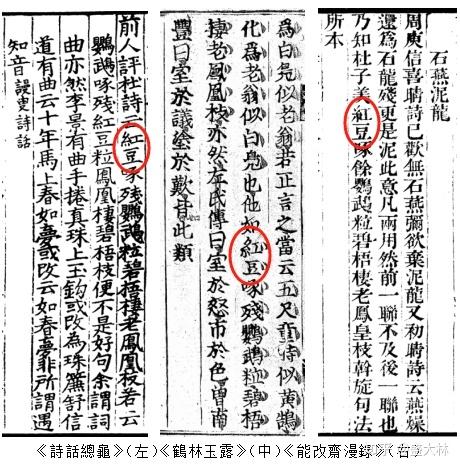 石燕泥龍
周庾信喜聘詩已歡無石燕彌欲棄泥龍又初聘詩云燕燥
還為石龍殘更是泥此意凡兩用然前一聯不及後一聯也
乃知杜子美紅豆啄餘鸚鵡粒碧梧棲老鳳皇枝斡旋句法
所本
為白鳧似老翁若正言之當云五尺童時似黃鵠
化為老翁似白鳧也他如紅豆啄殘鸚鵡粒碧梧
棲老鳳凰枝亦然左氏傳曰室於怒市於色曾南
豐曰室於議塗於歎皆此類
前人評杜詩云紅豆啄殘鸚鵡粒碧梧棲老鳳凰枝若云
鸚鵡啄殘紅豆粒鳳凰棲碧梧枝便不是好句余謂詞
曲亦然李景有曲手捲真珠上玉鉤或改為珠簾舒信
道有曲云十年馬上春如夢或改云如春夢非所謂遇
知音謾叟詩話
《詩話總龜》(左)《鶴林玉露》(中)《能改齋漫錄》(右)